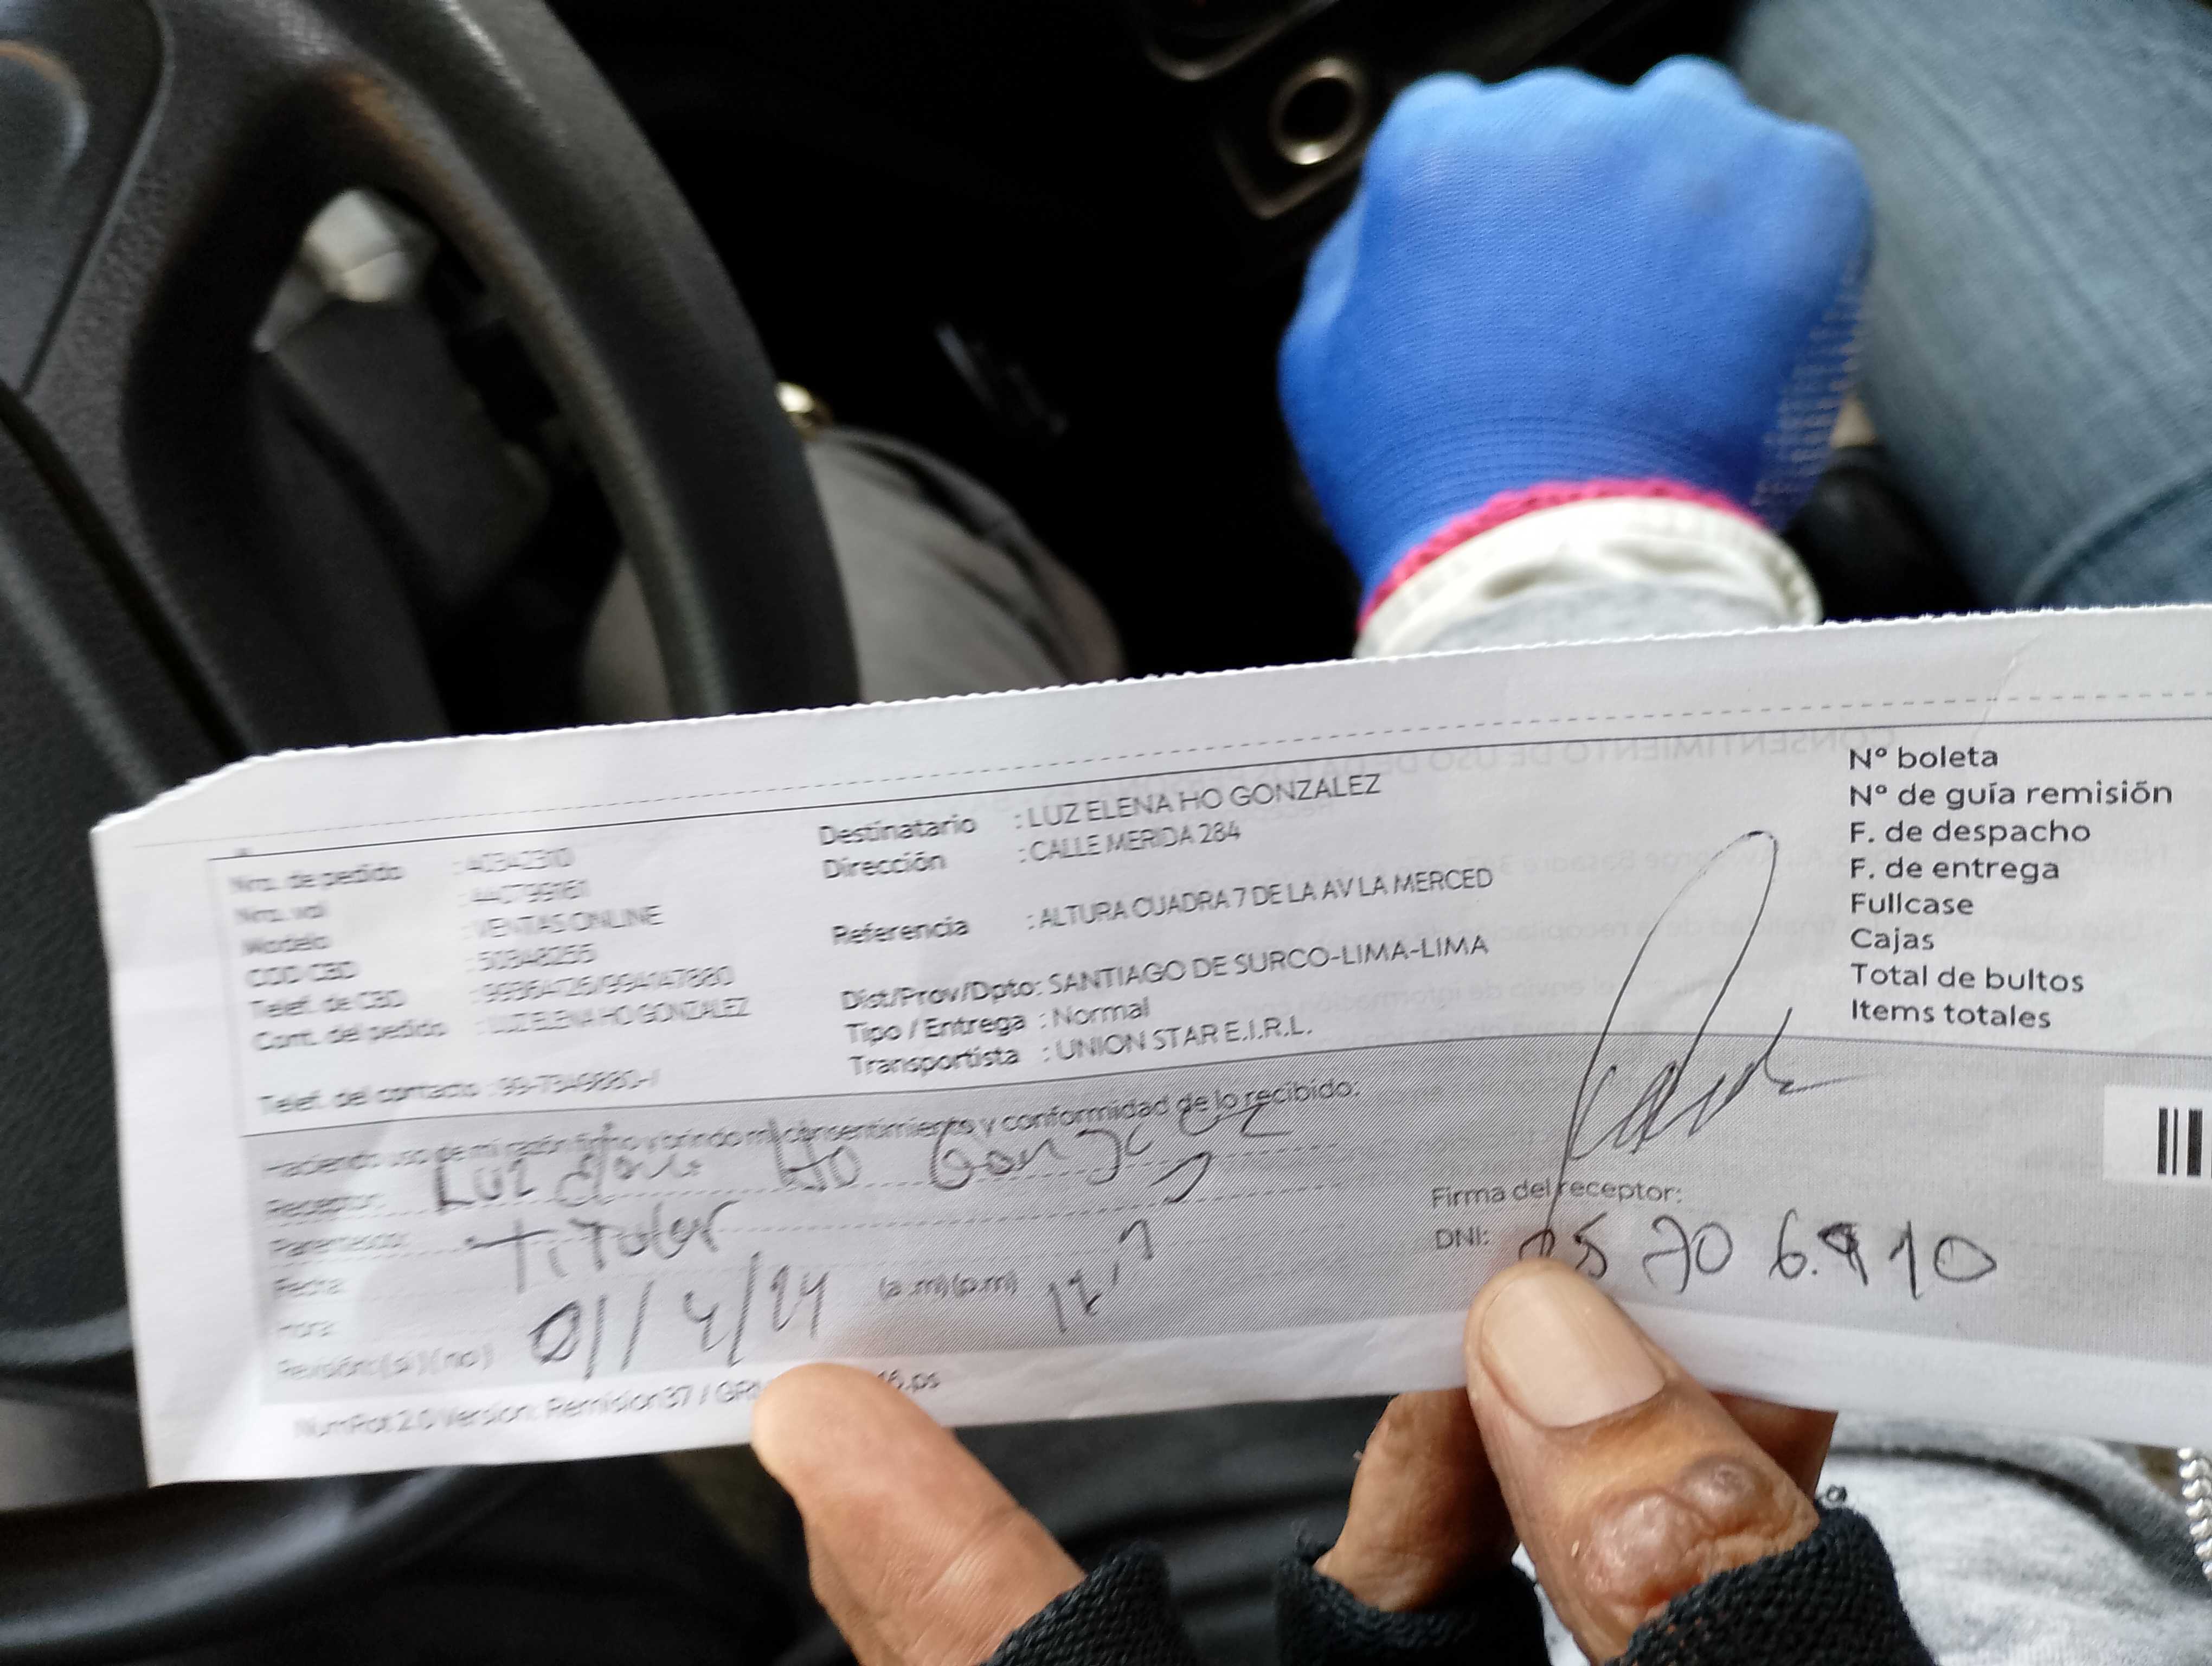 Nro. de pedido : A0342310
Nro. val : 440799161
Modelo : VENTAS ONLINE
COD CBD : 50348255
Telef. de CBD
Cont. del pedido : LUZ ELENA HO GONZALEZ
Telef. del contacto : 99-7349880-1
Destinatario : LUZ ELENA HO GONZALEZ
Dirección : CALLE MERIDA 284
Referencia : ALTURA CUADRA 7 DE LA AV LA MERCED
Dist/Prov/Dpto: SANTIAGO DE SURCO-LIMA-LIMA
Tipo / Entrega : Normal
Transportista : UNION STAR E.I.R.L.
Nº boleta
Nº de guía remisión
F. de despacho
F. de entrega
Fullcase
Cajas
Total de bultos
Items totales
Haciendo uso de mi razón firmo y brindo mi consentimiento y conformidad de lo recibido:
Receptor: Luz Elena Ho Gonzalez
Parentesco: Titular
Fecha:
Hora: (a.m) (p.m)
Revisión: (si) (no) 01/4/24
Firma del receptor:
DNI: 70 6.910
NumRot 2.0 Version: Remision37 / GR 16.ps